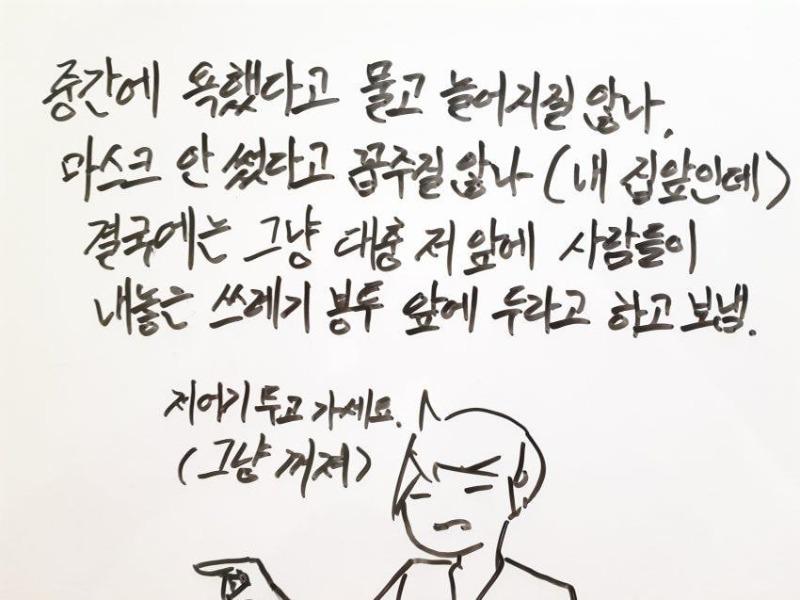 중간에 욕했다고 물고 늘어지질 않나,
마스크 안 썼다고 꼽주질 않나 (내 집앞인데)
결국에는 그냥 대충 저 앞에 사람들이
내놓은 쓰레기 봉투 앞에 두라고 하고 보냄.
저어기 두고 가세요.
(그냥 꺼져)